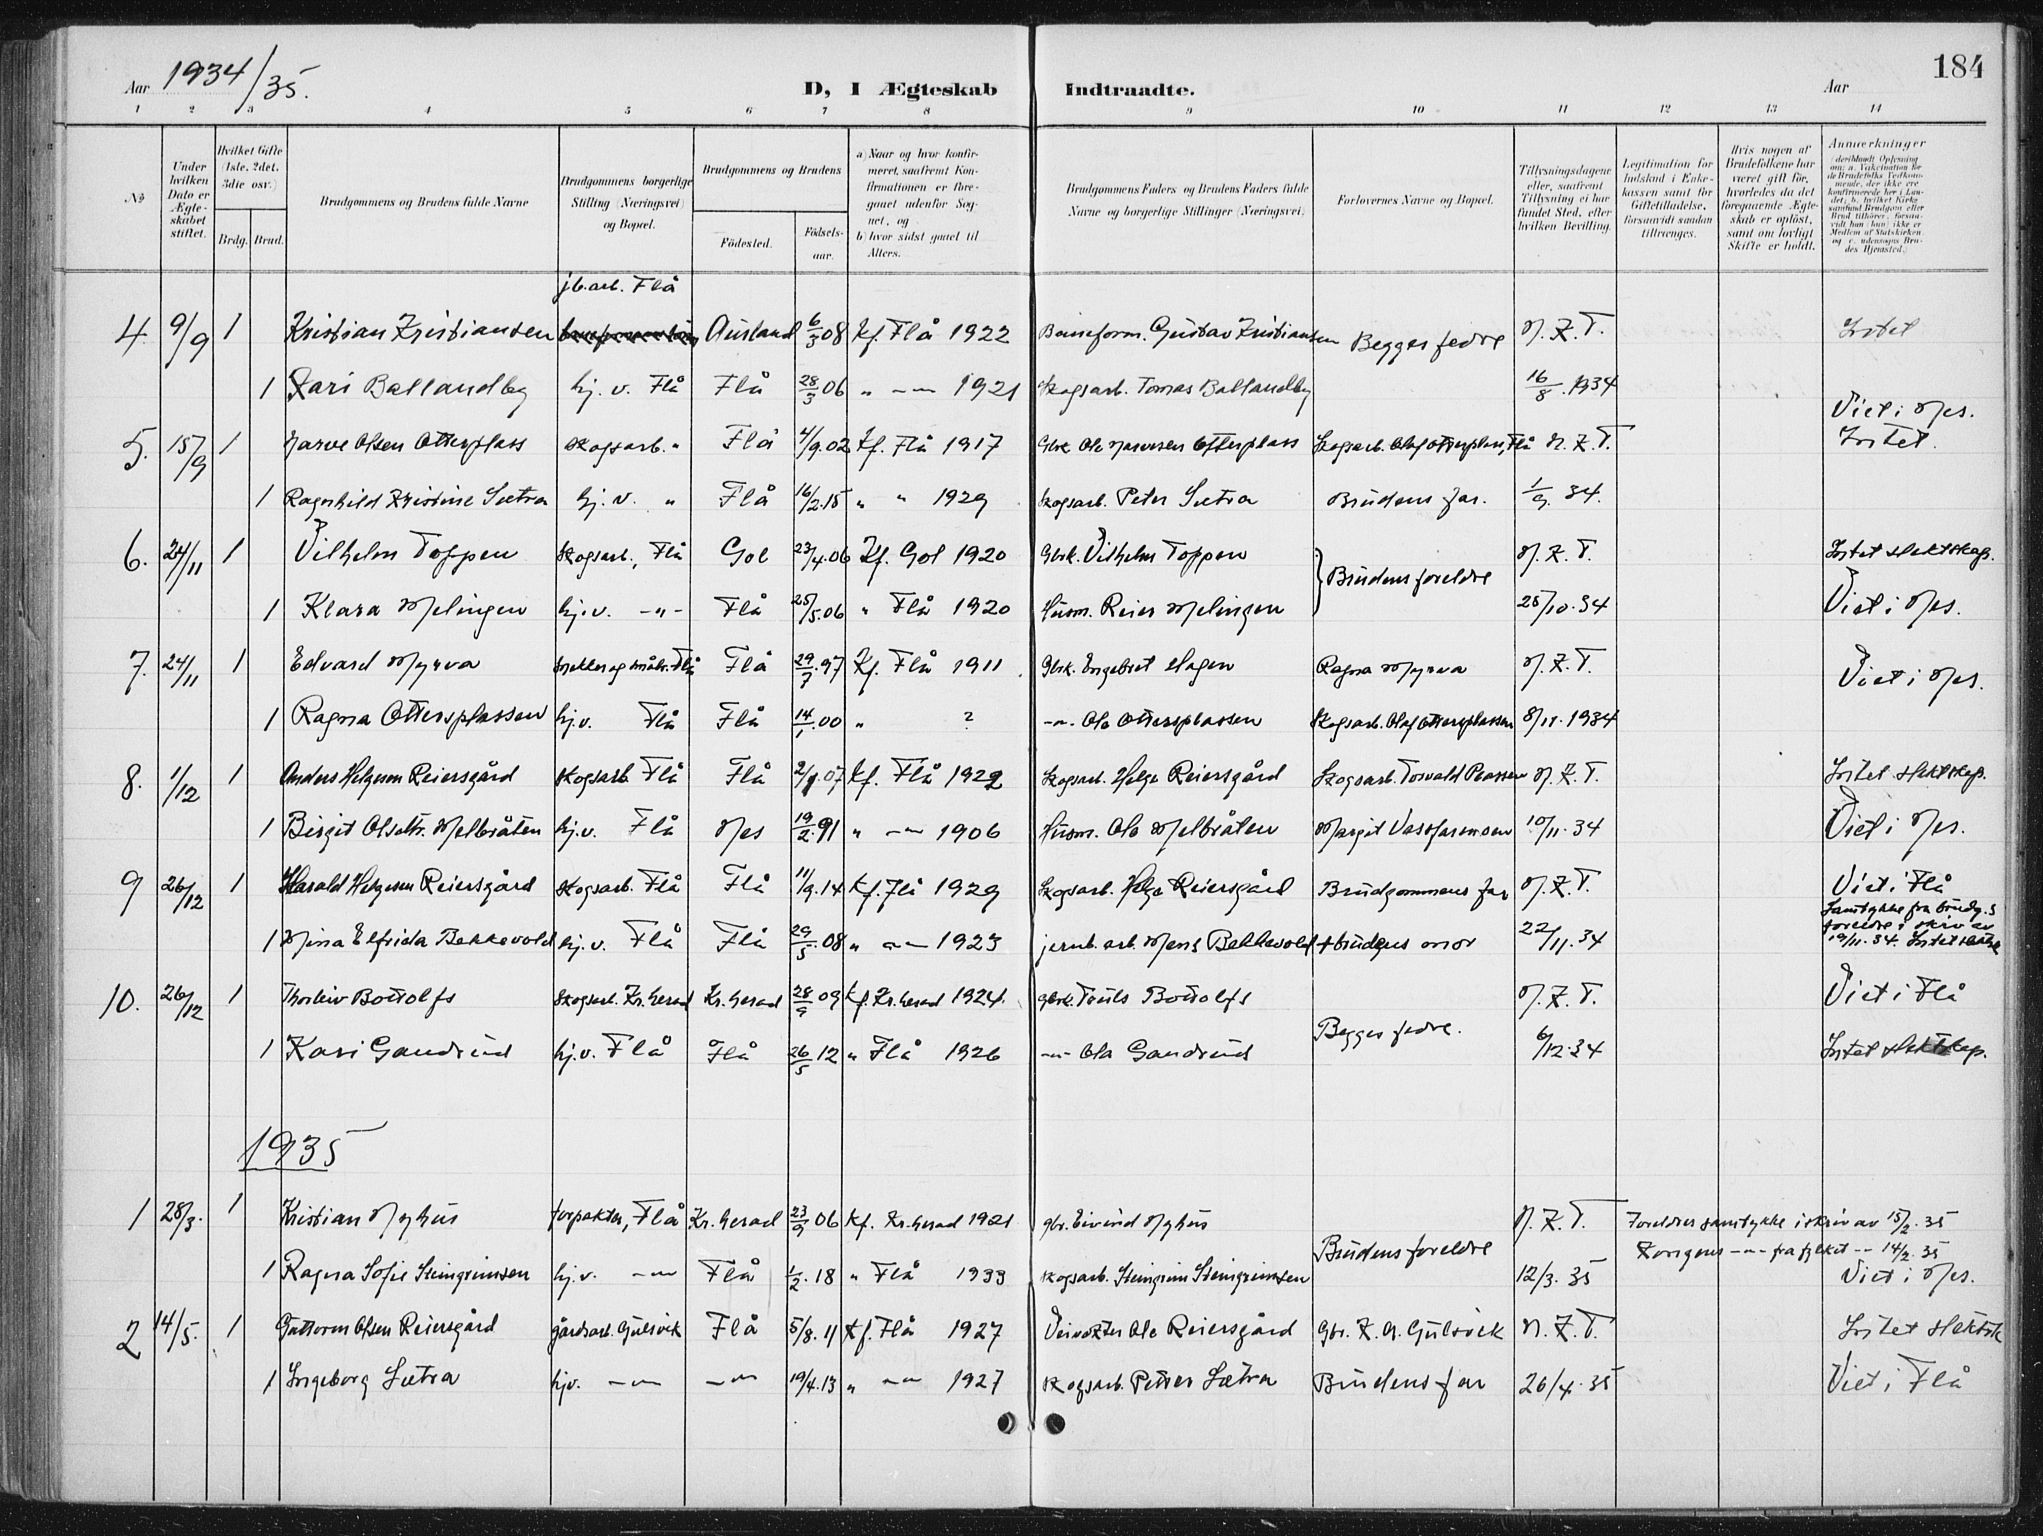 Aar 1934/35.
D, I Ægteskab Indtraadte.
Aar
184
1 2 3 4 5 6 7 8 9 10 11 12 13 14
No
Under hvilken Dato er Ægteskabet stiftet.
Hvilket Gifte (1ste, 2det, 3die osv.)
Brdg. Brud.
Brudgommens og Brudens fulde Navne
Brudgommens borgerlige Stilling (Næringsvei) og Bopæl.
Brudgommens og Brudens
Födested.
Födselsaar.
a) Naar og hvor konfirmeret, saafremt Konfirmationen er foregaaet udenfor Sognet, og
b) hvor sidst gaaet til Alters.
Brudgommens Faders og Brudens Faders fulde Navne og borgerlige Stillinger (Næringsvei)
Forlovernes Navne og Bopæl.
Tillysningsdagene eller, saafremt Tillysning ei har fundet Sted, efter hvilken Bevilling.
Legitimation for Indskud i Enkekassen samt for Giftetilladelse, forsaavidt saadan tiltrænges.
Hvis nogen af Brudefolkene har været gift för, hvorledes da det foregaaende Ægteskab er oplöst, samt om lovligt Skifte er holdt.
Anmærkninger
jb.arb. Flå
4 9/9 1 Kristian Kristiansen Ausland 6/3 08 Kf. Flå 1922 Baneform. Gustav Kristiansen Begges fedre N.K.T. Intet
1 Kari Ballandby hj. v. Flå Flå 28/3 06 " -"- 1921 Skogsarb. Tomas Ballandby 16/8. 1934
Viet i Nes.
5. 15/9 1 Narve Olsen Otterplass skogsarb. " Flå 4/9.02 Kf. Flå 1917 Gbrk. Ole Narvesen Otterplass Skogsarb. Olaf Otterplass, Flå N.K.T. Intet.
1 Ragnhild Kristine Sætra hj. v. " Flå 16/2.15 " " 1929 Skogsarb. Peter Sætra Brudens far. 1/9. 34.
6. 24/11 1 Vilhelm Toppen Skogsarb., Flå Gol 23/4.06 Kf. Gol 1920 Gbrk. Vilhelm Toppen Brudens foreldre N.K.T. Intet slektskap.
1 Klara Melingen hj.v. -"- Flå 25/5.06 " Flå 1920 Husm. Reier Melingen 25/10.34 Viet i Nes.
7. 24/11 1 Edvard Myrva Flå Flå 29/7.97 Kf. Flå 1911 Gbrk. Engebret Hagen Ragna Myrva N.K.T. Viet i Nes.
1 Ragna Ottersplassen hj.v. Flå Flå 14/1.00 " ? -"- Ole Ottersplassen Skogsarb. Olaf Ottersplassen 8/11.1934
8. 1/12 1 Anders Helgesen Reiersgård skogsarb. Flå Flå 2/1.07 Kf. Flå 1922 Skogsarb. Helge Reiersgård Skogsarb. Torvald Plassen N.K.T. Intet slektskap.
1 Birgit Olsdtr. Melbråten hj.v. Flå Nes 19/2.91 " -"- 1906 Husm. Ole Melbråten Margit Vassfaremoen 10/11.34 Viet i Nes.
9 26/12 1 Harald Helgesen Reiersgård Skogsarb. Flå Flå 11/9.14 Kf. Flå 1929 Skogsarb. Helge Reiersgård Brudgommens far N.K.T. Viet i Flå
1 Mina Elfrida Bekkevold hj.v. Flå Flå 29/5 08 " -"- 1923 jernb. arb. Mons Bekkevold + brudens mor 22/11.34 Samtykke fra brudg.s foreldre i skriv av 19/11.34. Intet slektsk
10. 26/12 1 Thorleiv Bottolfs Skogsarb. Kr.herad Kr.herad 28/9 09 Kf. Kr.herad 1924. gbrk. Truls Bottolfs Begges fedre. N.K.T. Viet i Flå
1 Kari Gandrud hj.v. Flå Flå 26/5 12 " Flå 1926 -"- Ola Gandrud 6/12.34 Intet slektskap.
1935
1 28/3. 1 Kristian Myhus forpakter, Flå Kr.herad 23/9 06 Kf. Kr.herad 1921 gbr. Eivind Myhus Brudens foreldre N.K.T. Foreldres samtykke i skriv av 15/2.35
Kongens -"- fra fylket -"- 14/2.35
1 Ragna Sofie Steingrimsen hj.v. -"- Flå 1/2.18 " Flå 1933 skogsarb. Steingrim Steingrimsen 12/3.35 Viet i Nes.
2 14/5. 1 Guttorm Olsen Reiersgård gårdsarb. Gulsvik Flå 5/8.11 Kf. Flå 1927 Veivokter Ole Reiersgård Gbr. K. A. Gulsvik N.K.T. Intet slektsk
1 Ingeborg Sætra hjv. -"- -"- 19/4.13 " -"- 1927 skogsarb. Petter Sætra Brudens far 26/4.35 Viet i Flå